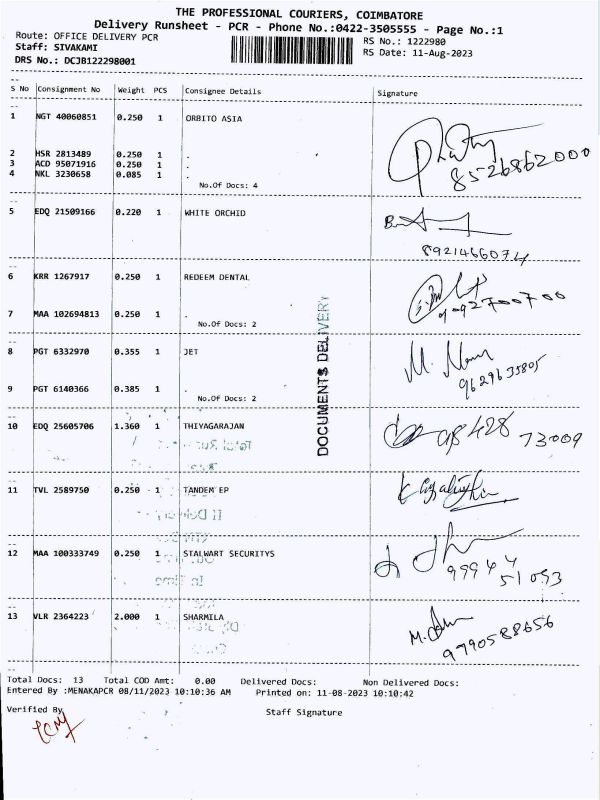 THE PROFESSIONAL COURIERS, COIMBATORE
Delivery Runsheet - PCR - Phone No.:0422-3505555 - Page No.:1
Route: OFFICE DELIVERY PCR
RS No.: 1222980
Staff: SIVAKAMI
RS Date: 11-Aug-2023
DRS No.: DCJB122298001
S No Consignment No Weight PCS Consignee Details Signature
1 NGT 40060851 0.250 1 ORBITO ASIA
2 HSR 2813489 0.250 1 .
3 ACD 95071916 0.250 1 .
4 NKL 3230658 0.085 1 .
8526862000
No.Of Docs: 4
5 EDQ 21509166 0.220 1 WHITE ORCHID
8921466074
6 KRR 1267917 0.250 1 REDEEM DENTAL
7 MAA 102694813 0.250 1 .
No.Of Docs: 2
DOCUMENTS DELIVERY
8 PGT 6332970 0.355 1 JET
9629635805
9 PGT 6140366 0.385 1 .
No.Of Docs: 2
10 EDQ 25605706 1.360 1 THIYAGARAJAN
73009
11 TVL 2589750 0.250 1 TANDEM EP
12 MAA 100333749 0.250 1 STALWART SECURITYS
99944
51093
13 VLR 2364223 2.000 1 SHARMILA
9790588656
Total Docs: 13 Total COD Amt: 0.00 Delivered Docs: Non Delivered Docs:
Entered By :MENAKAPCR 08/11/2023 10:10:36 AM Printed on: 11-08-2023 10:10:42
Verified By
Staff Signature